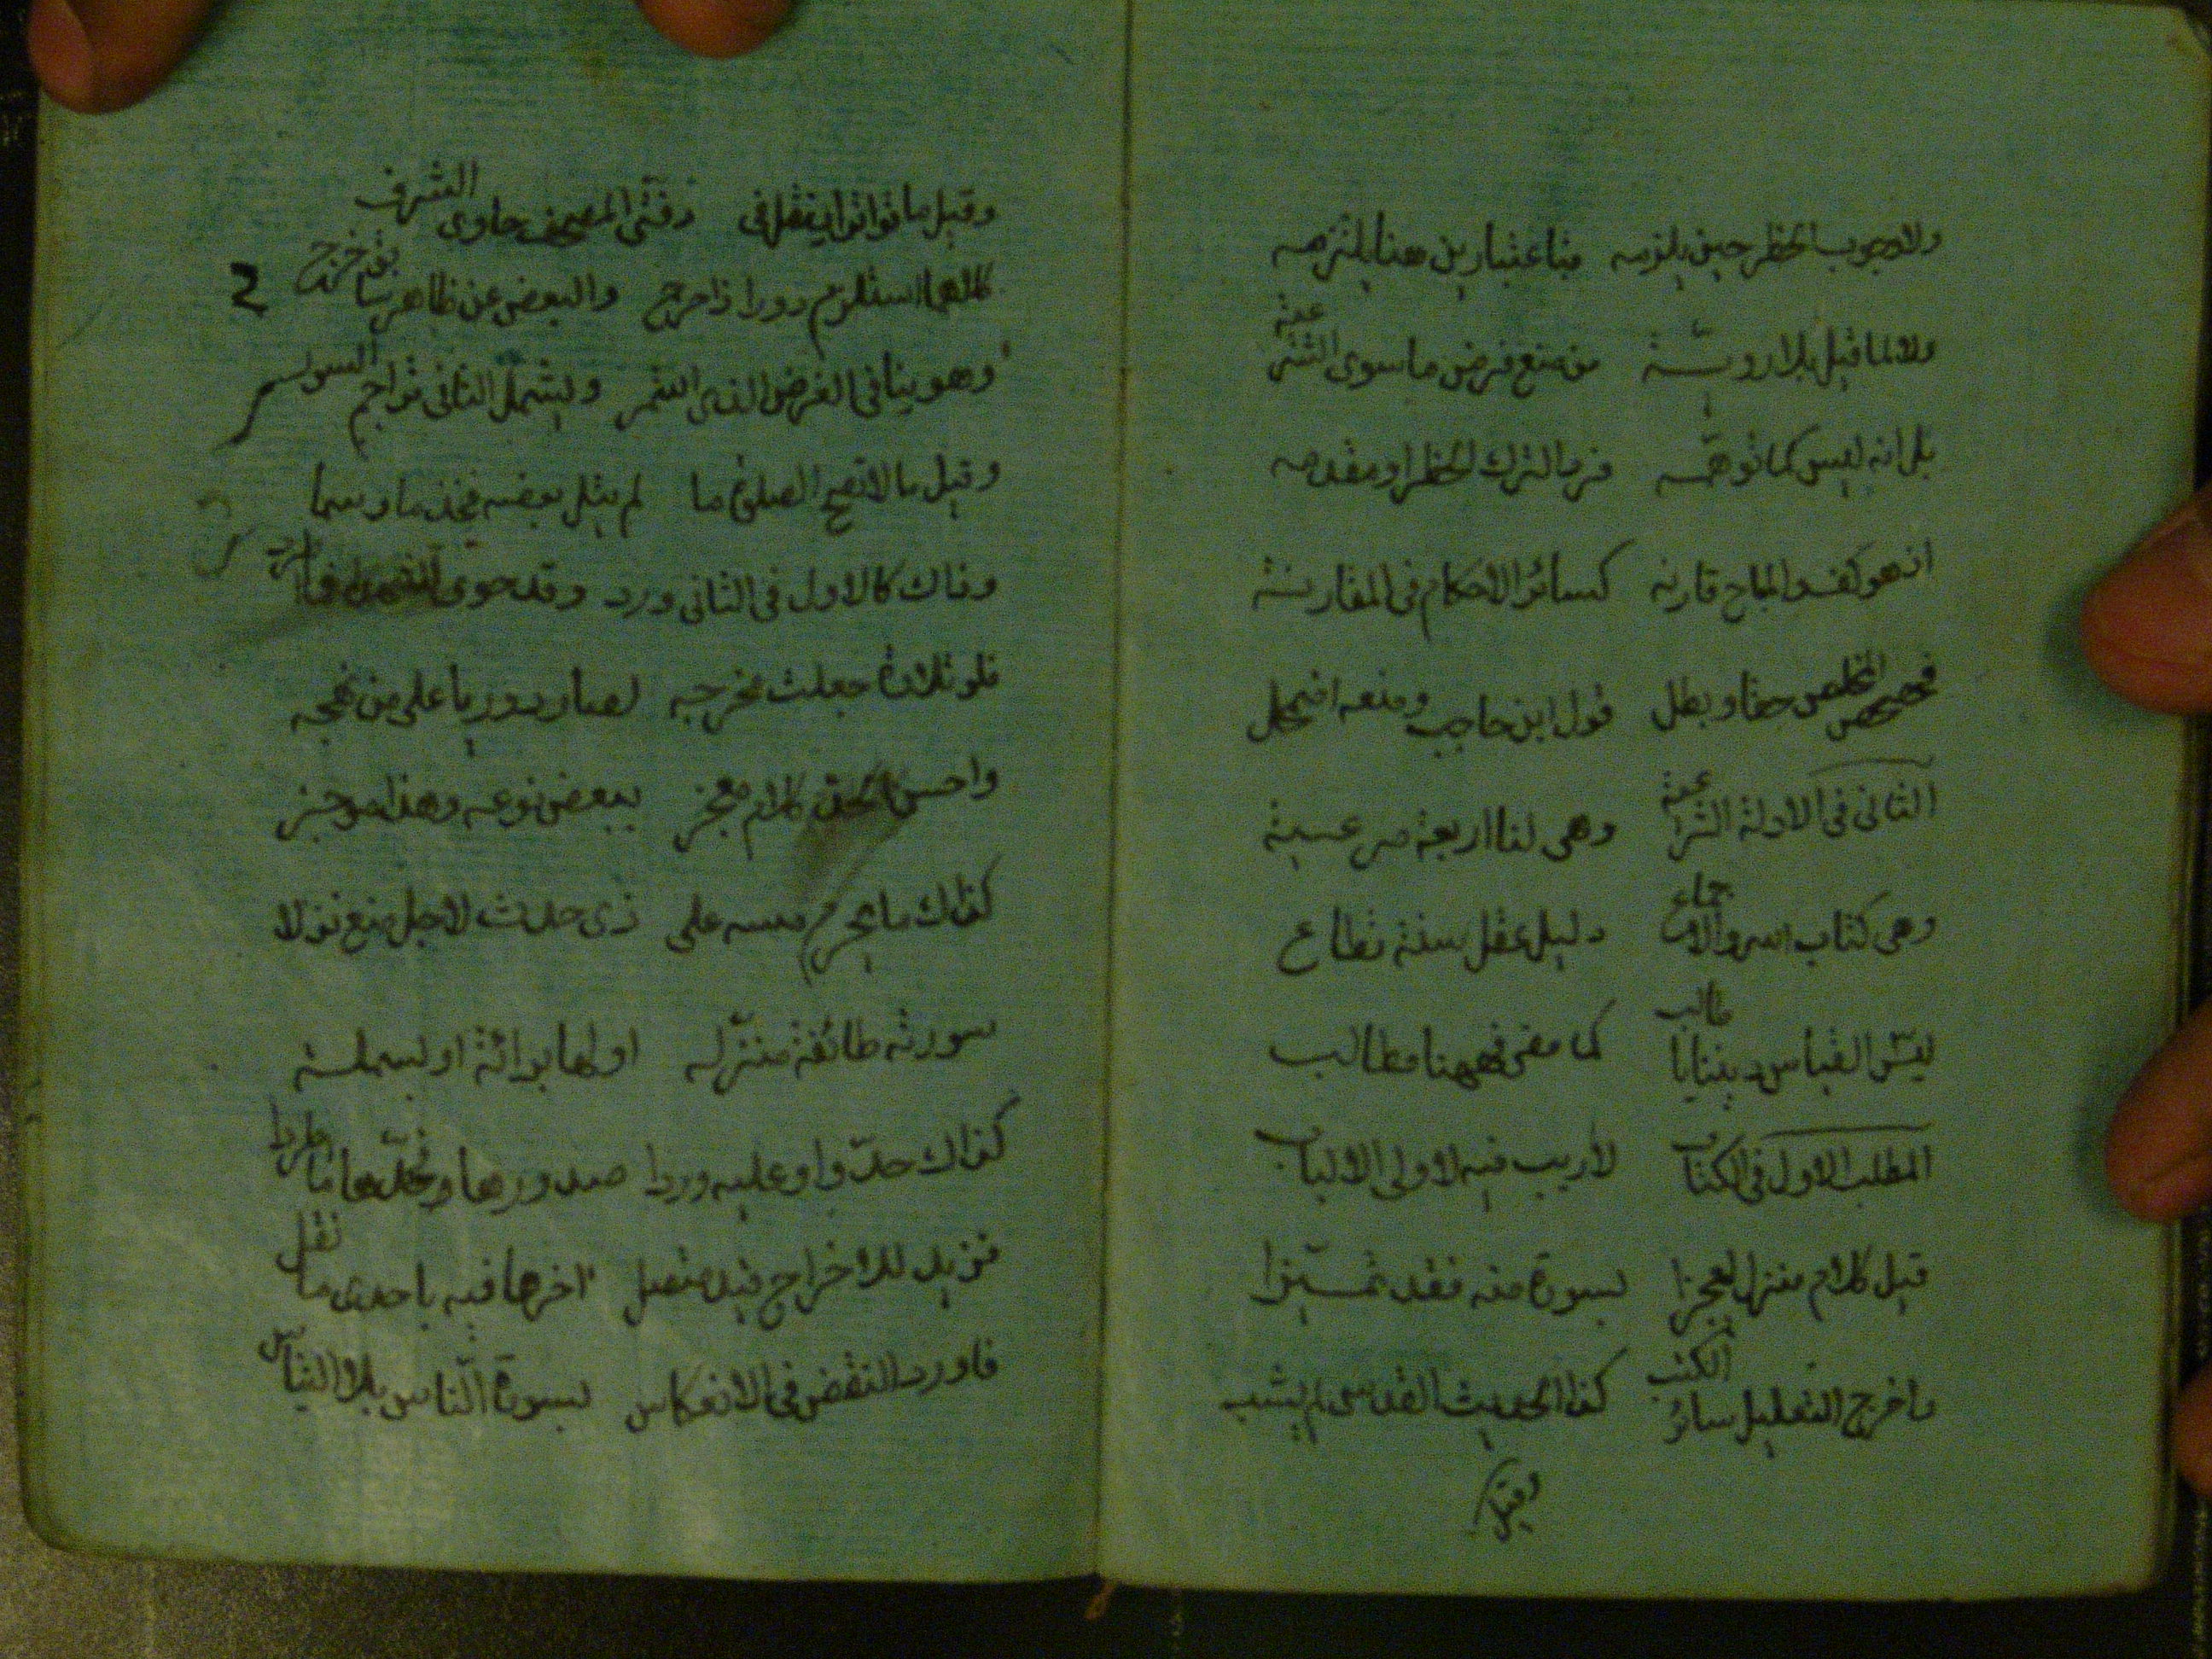 ولا وجوب الحظر حين يلزمه باعتبارين هنا يلتزمه
ولا لما قيل بلا روية من منع فرض ما سوى الشرعية
بل انه ليس كما توهمه فرد الترك الحظر او مقدمه
اذ هو كفو المباح قارنه كسائر الاحكام في المقارنة
فحصحص الحق وبطل قول ابن حاجب ومنعه اضمحل
الثاني في الادلة الشرعية وهي لنا اربعة مرعية
وهي كتاب الله والاجماع دليل عقل سنة تطاع
ليس القياس ديننا كما مضى فههنا مطالب
المطلب الاول في الكتاب لا ريب فيه لاولي الالباب
قيل كلام منزل لعجزا بسورة منه فقد تميزا
واخرج التعليل سائر الكتب كذا الحديث القدسي لم يشب
وقيل
وقيل ما تواترا ينقل في دفتي المصحف حاوي الشرف
كلاهما استلزم دورا ذا حرج والبعض عن ظاهر ما خرج
وهو ينافي الغرض الذي استقر ويشمل الثاني تراجم السور
وقيل ما لا تصح الصلوة ما لم يتل بعضه فخذ ما وسما
وذاك كالاول في الثاني ورد وقد حوى
فلو تلاوة جعلت مخرجه لصار دوريا على من نهجه
واحسن الحد كلام معجز ببعض نوعه وهذا موجز
كذاك ما يحرم مسه على ذي حدث لاجل منع نزلا
سورته طائفة منزله اولها برائة او بسملة
كذاك حدوا وعليه وردا صدورها
فزيد للاخراج قيد متصل اخرها فيه باحدى ما نقل
فاورد النقض في الانعكاس بسورة الناس بلا التباس